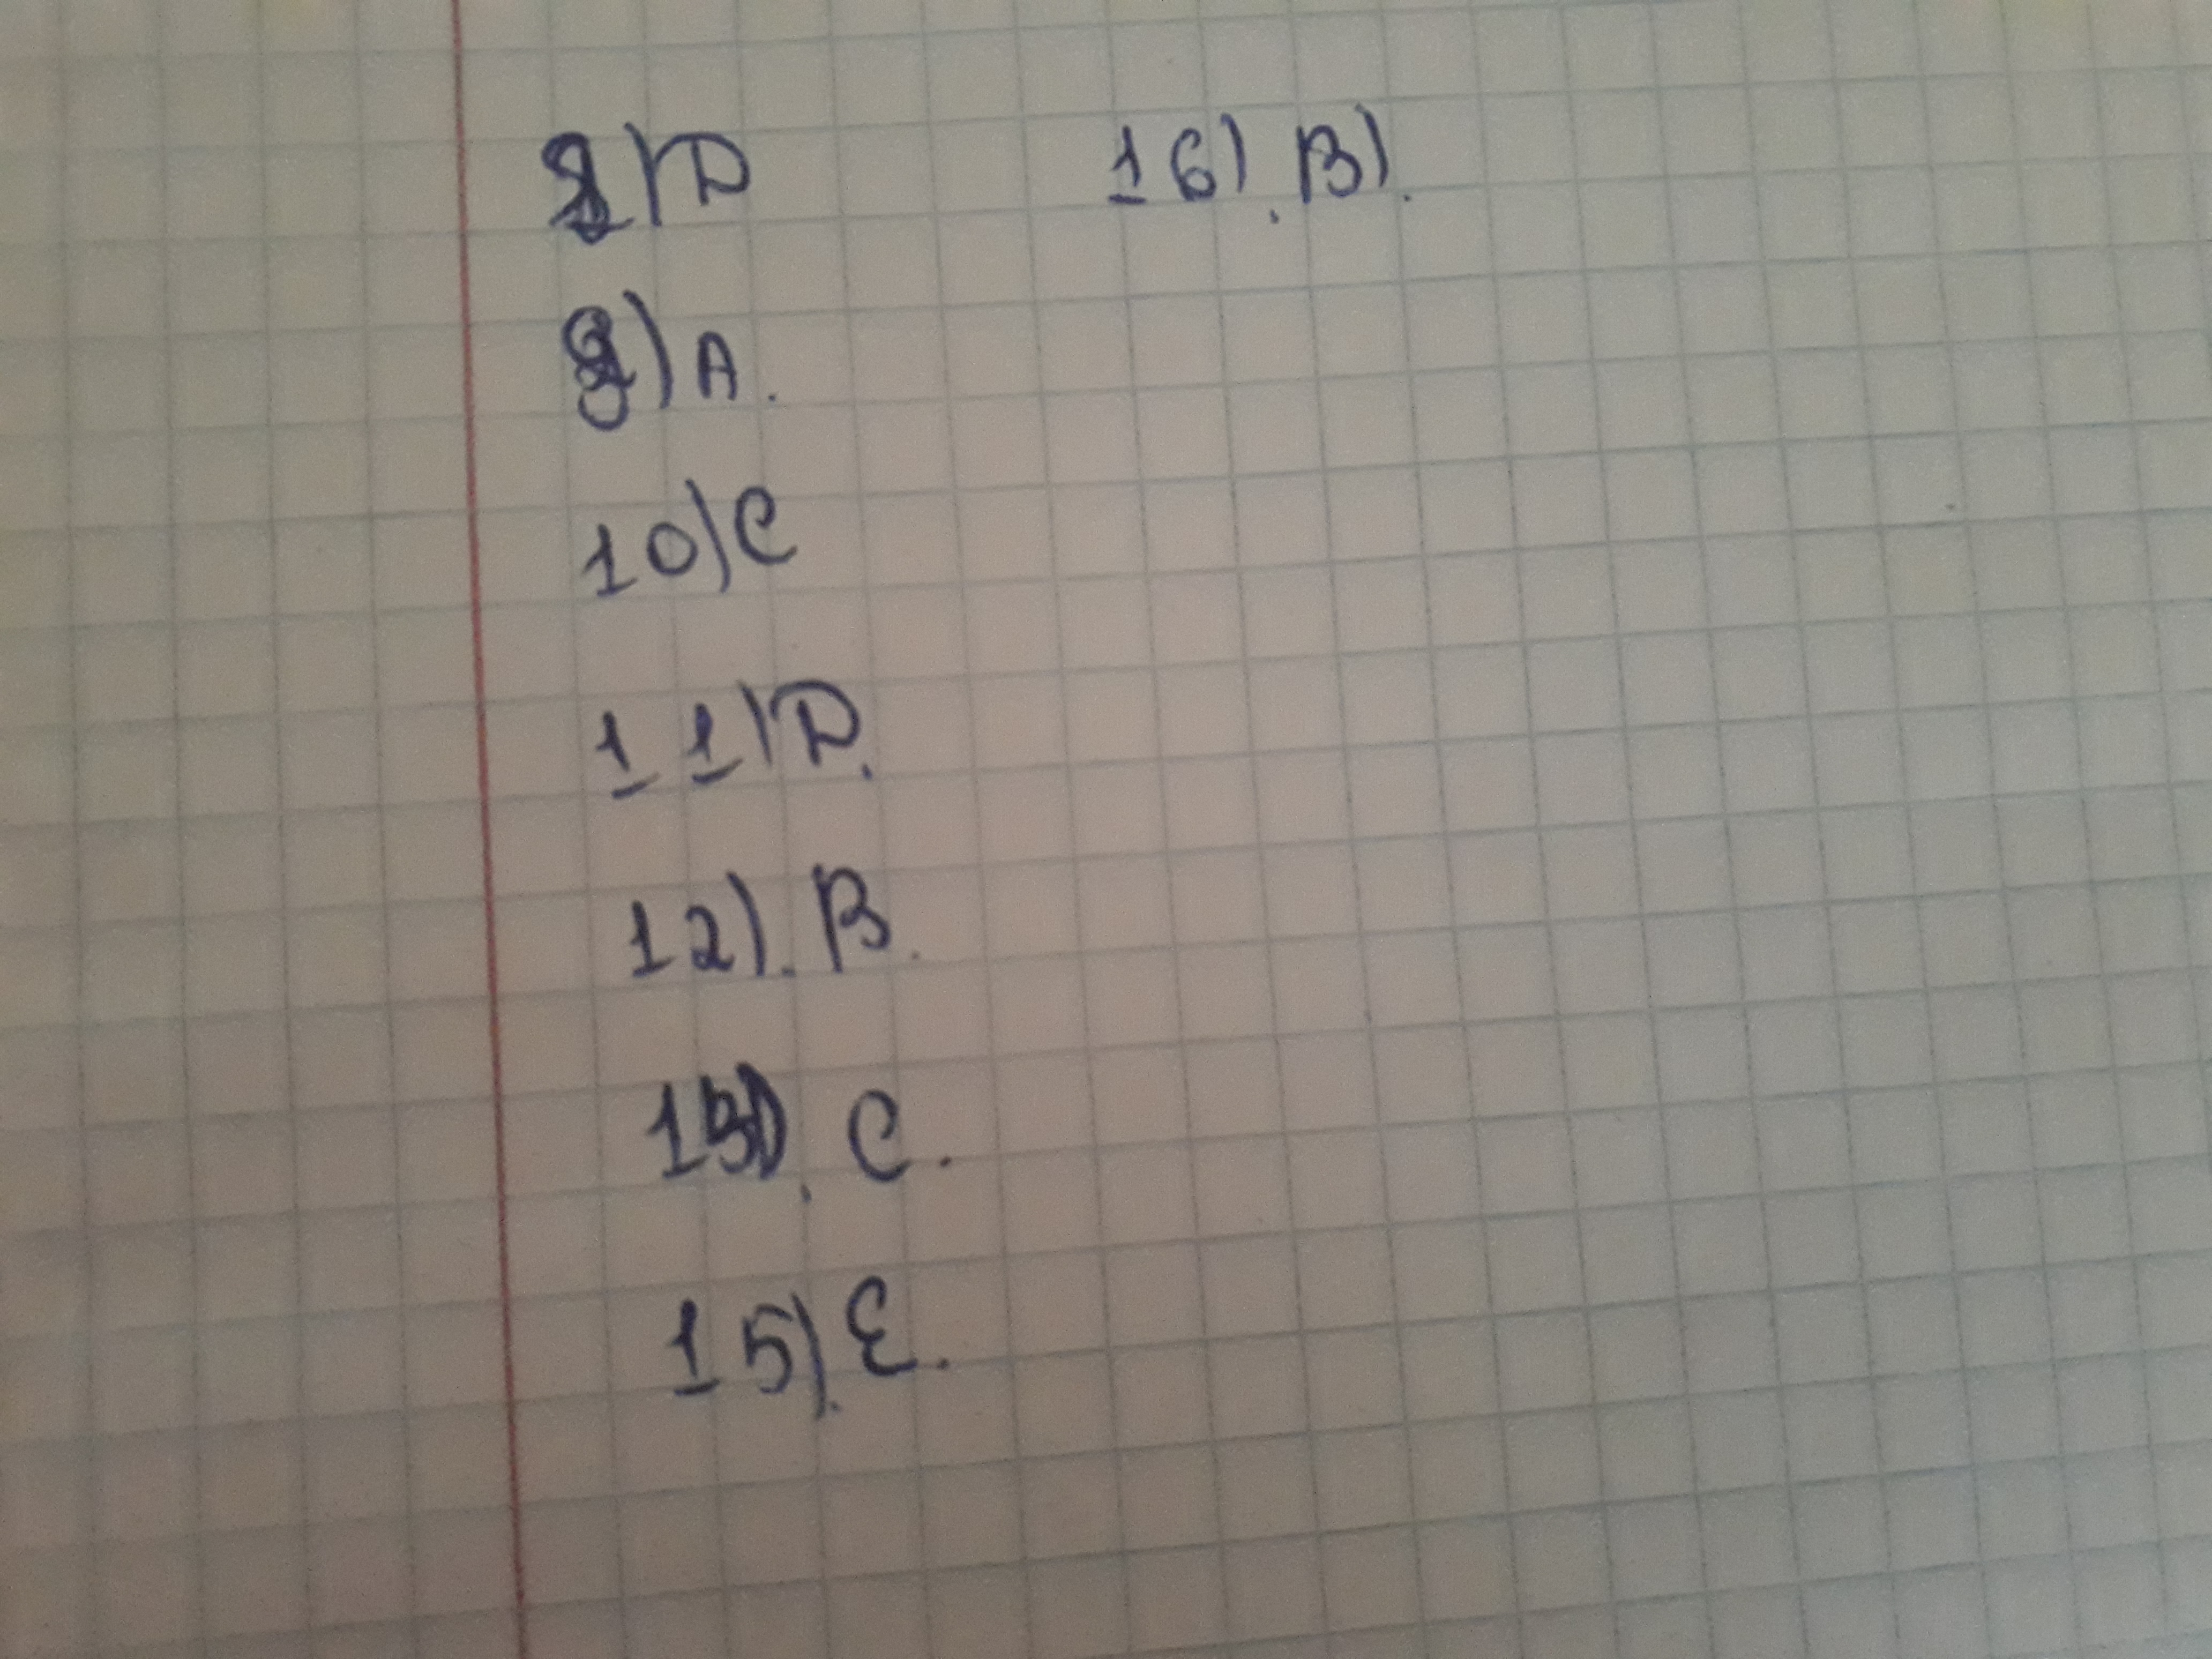 8) D
9) A.
10) C
11) D.
12). B.
C.
15). E.
16). B).